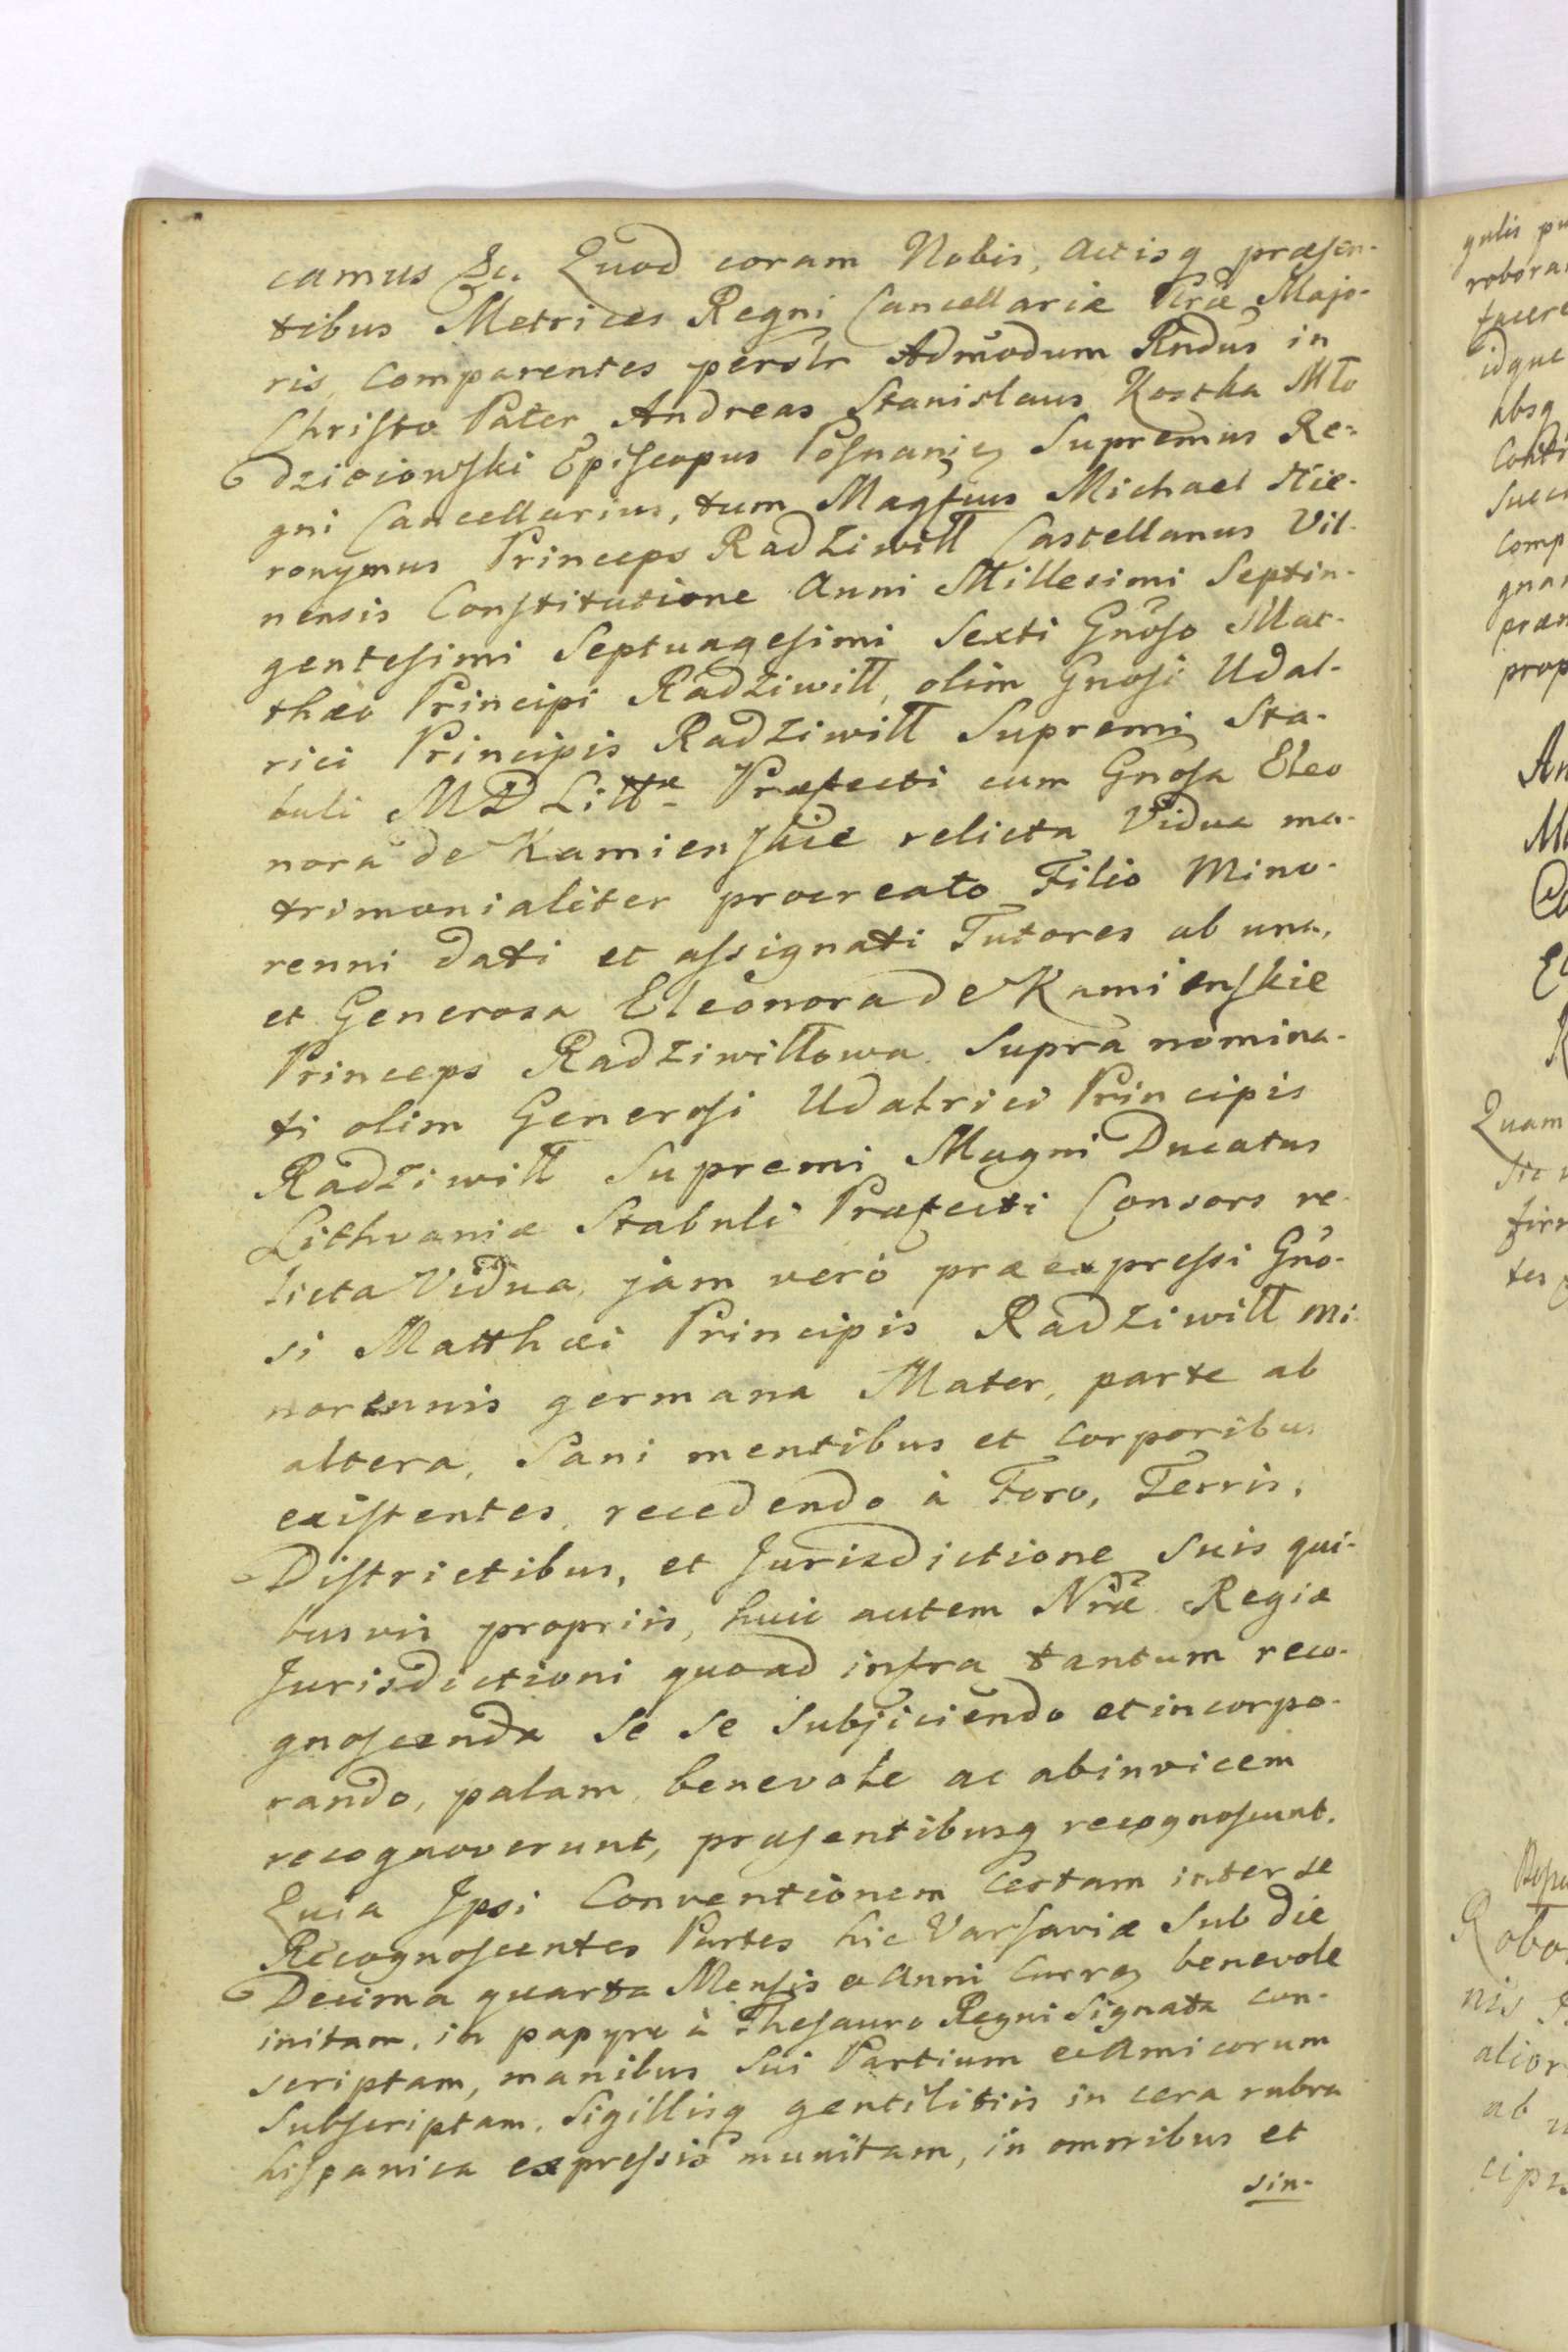 camus &c. Quod coram Nobis, Actisq præsen-
tibus Metrices Regni Cancellariæ Majo-
ris, Comparentes Admodum Rndus in
Christo Pater Andreas Stanislaus Kostka Mło
dzieiowski Episcopus Posnaniẽ Supremus Re-
gni Cancellarius, tum Magfcus Michael Hie-
ronymus Princeps Radziwiłł Castellanus Vil-
nensis Constitutione Anni Millesimi Septin-
gentesimi Septuagesimi Sexti Gnõso Mat-
thæo Principi Radziwiłł, olim Gnosi Udal-
rici Principis Radziwiłł Supremi Sta-
buli MD Littæ Præfecti cum Gnosa Eleo
nora de Kamienskie relicta Vidua ma-
trimonialiter procreato Filio Mino-
renni dati et assignati Tutores ab una,
et Generosa Eleonora de Kamienskie
Princeps Radziwiłłowa Supra nomina-
ti olim Generosi Udalrici Principis
Radziwiłł Supremi Magni Ducatus
Lithvaniæ Stabuli Præfecti Consors re-
licta Vidua, jam verò præexpressi Gnõ-
si Matthæi Principis Radziwiłł mi-
norennis germana Mater, parte ab
altera, Sani mentibus et Corporibus
existentes, recedendo à Foro, Terris,
Districtibus, et Jurisdictione Suis qui-
busvis propriis, huic autem Nrĩæ Regiæ
Jurisdictioni quoad infra tantum reco-
gnoscenda Se Se Subjiciendo et incorpo-
rando, palam, benevole ac abinvicem
recognoverunt, præsentibusq recognoscunt.
Quia Ipsi Conventionem Certam inter se
Recognoscentes Partes hic Varsaviæ Sub die
Decima quarta Mensis et Anni Curreñ benevole
initam, in papyro à Thesauro Regni Signata con-
scriptam, manibus Sui Partium et Amicorum
Subscriptam, Sigillisq gentilitiis in cera rubra
hispanica expressis munitam, in omnibus et
sin-